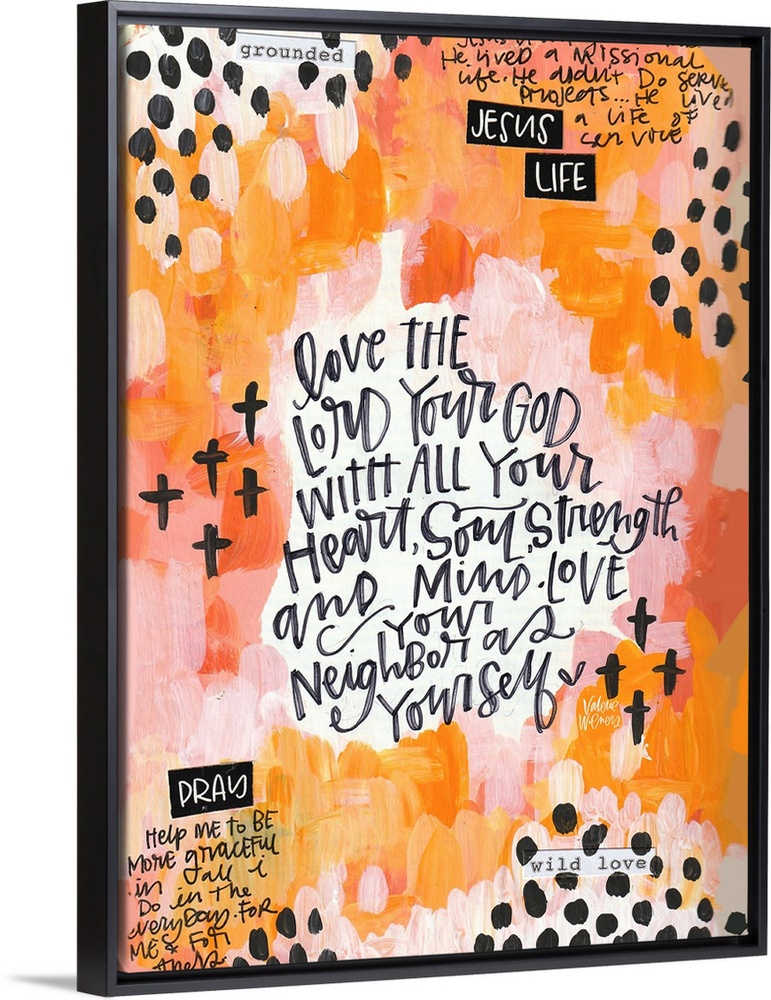 grounded
He lived a missional
life. He didn't Do serve
projects... He lived
a life of
JESUS
LIFE
love THE
LORD Your GOD
WITH ALL Your
Heart, Soul, Strength
and Mind. LOVE
your
NeighBor as
yourself
Valerie
Wieners
PRAY
HELP ME TO BE
MORE graceful
in all i
DO in THE
everyDAY. FOR
ME &
wild love